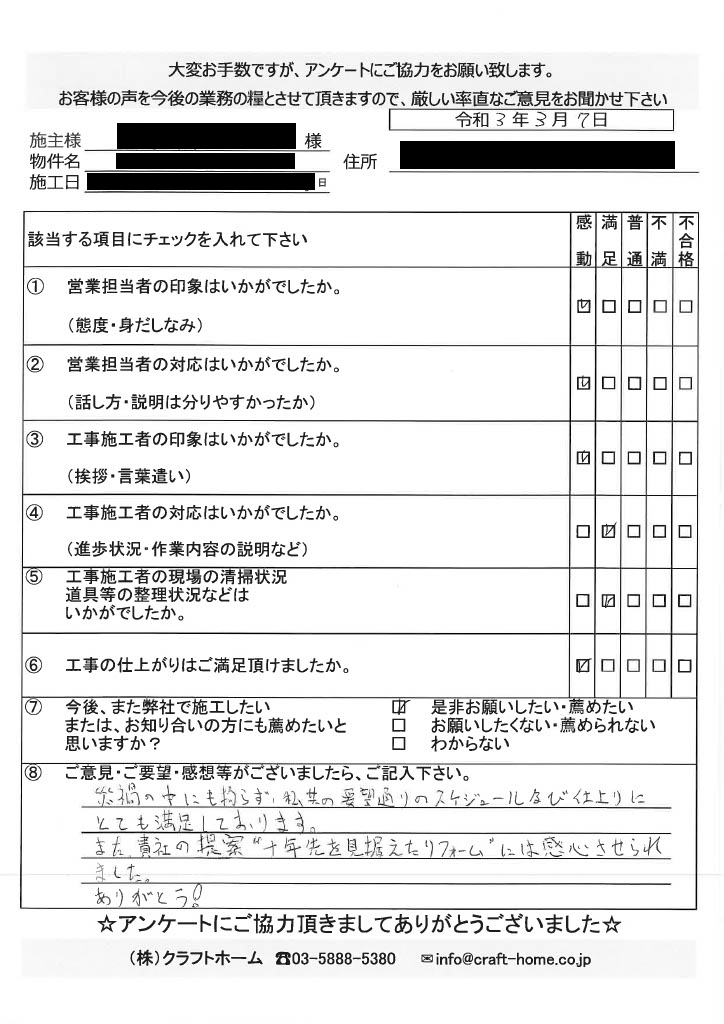 大変お手数ですが、アンケートにご協力をお願い致します。
お客様の声を今後の業務の糧とさせて頂きますので、厳しい率直なご意見をお聞かせ下さい
令和3年3月7日
施主様 様
物件名 住所
施工日 日
該当する項目にチェックを入れて下さい 感動 満足 普通 不満 不合格
① 営業担当者の印象はいかがでしたか。
(態度・身だしなみ)
② 営業担当者の対応はいかがでしたか。
(話し方・説明は分りやすかったか)
③ 工事施工者の印象はいかがでしたか。
(挨拶・言葉遣い)
④ 工事施工者の対応はいかがでしたか。
(進歩状況・作業内容の説明など)
⑤ 工事施工者の現場の清掃状況
道具等の整理状況などは
いかがでしたか。
⑥ 工事の仕上がりはご満足頂けましたか。
⑦ 今後、また弊社で施工したい 是非お願いしたい・薦めたい
または、お知り合いの方にも薦めたいと お願いしたくない・薦められない
思いますか？ わからない
⑧ ご意見・ご要望・感想等がございましたら、ご記入下さい。
禍の中にも拘らず、私共の要望通りのスケジュール及び仕上りに
とても満足しております。
また、貴社の提案“十年先を見据えたリフォーム”には感心させられ
ました。
ありがとう!
☆アンケートにご協力頂きましてありがとうございました☆
(株)クラフトホーム ☎03-5888-5380 ✉info@craft-home.co.jp